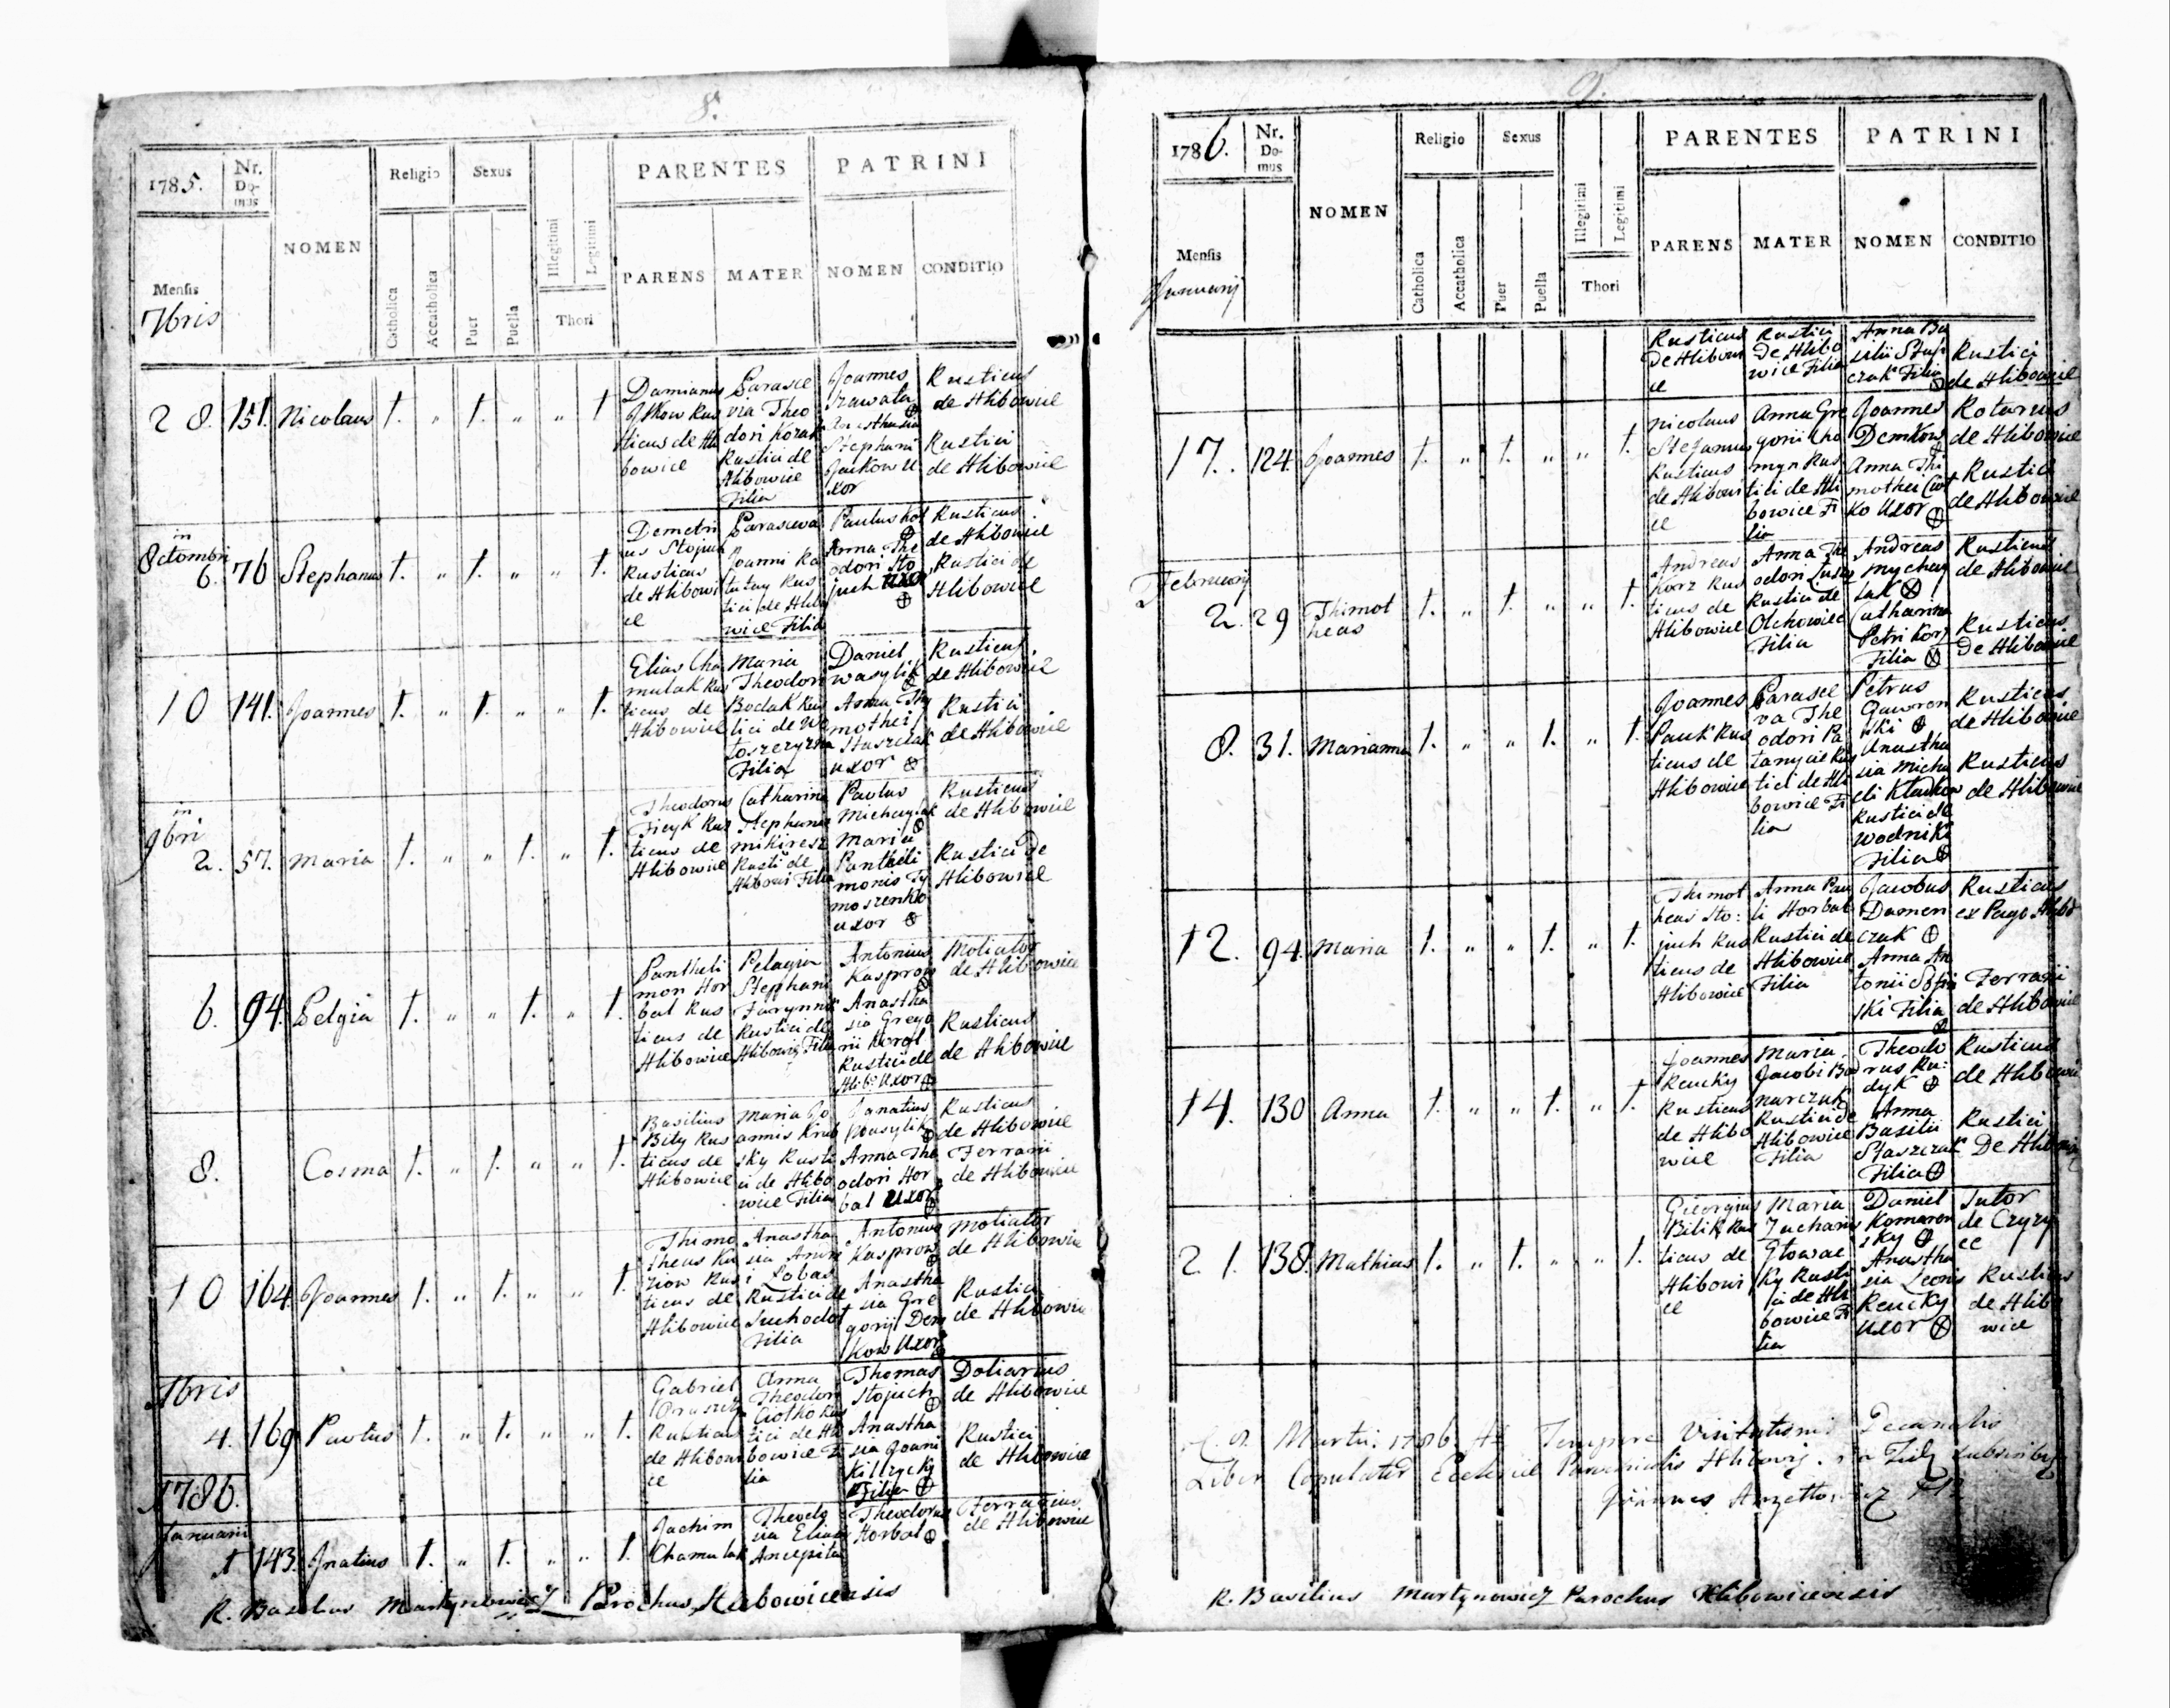 8.
1785.
Nr. Do- mus
NOMEN
Religio
Sexus
PARENTES
PATRINI
Mensis
7bris
Catholica
Accatholica
Puer
Puella
Illegitimi
Legitimi
Thori
PARENS
MATER
NOMEN
CONDITIO
28. 151. Nicolaus 1. " 1. " " 1.
Damianus
Rus
ticus de Hli
bowice
Parasce
via Theo
dori Kozak
Rustici de
Hlibowice
Filia
Joannes
Anasthasia
Stephani
Jackow U
xor
Rusticus
de Hlibowice
Rustici
de Hlibowice
in
Octombri
6. 76 Stephanus 1. " 1. " " 1.
Demetri
us Stojuch
Rusticus
de Hlibowi
ce
Parasceva
Joanni
Rus
tici de Hlibo
wice Filia
Paulus
Anna The
odori Sto
juch uxor
Rusticus
de Hlibowice
Rustici de
Hlibowice
10 141. Joannes 1. " 1. " " 1.
Elias Cha
mulak Rus
ticus de
Hlibowice
Maria
Theodori
Bodak Rus
tici de Wo
toszczyzna
Filia
Daniel
Wasylik
Anna Thy
mothei
Staszczak
uxor
Rusticus
de Hlibowice
Rustici
de Hlibowice
in
9bri
2. 57. Maria 1. " " 1. " 1.
Theodorus
Rus
ticus de
Hlibowice
Catharina
Stephani
Rusti de
Hlibowi Filia
Paulus
Michaylak
Maria
Pantheli
monis Ty
moszenko
uxor
Rusticus
de Hlibowice
Rustici de
Hlibowice
6. 94. Pelgia 1. " " 1. " 1.
Pantheli
mon Hor
bal Rus
ticus de
Hlibowice
Pelagia
Stephani
Farynna
Rustici de
Hlibowi Filia
Antonius
Kasprow
Anastha
sia Grego
rii
Rustici de
Hlib: Uxor
Moliator
de Hlibowice
Rusticus
de Hlibowice
8. Cosma 1. " 1. " " 1.
Basilius
Bily Rus
ticus de
Hlibowice
Maria Jo
annis Krub
sky Rusti
ci de Hlibo
wice Filia
Ignatius
Wasylik
Anna The
odori Hor
bal Uxor
Rusticus
de Hlibowice
Ferrarii
de Hlibowice
10 164. Joannes 1. " 1. " " 1.
Thimo
theus Ku
Rus
ticus de
Hlibowice
Anastha
sia
Lobas
Rustici de
Suchodol
Filia
Antonius
Kasprow
Anastha
sia Gre
gorij Dem
kow Uxor
Moliator
de Hlibowice
Rustici
de Hlibowice
Xbris
4. 169 Paulus 1. " 1. " " 1.
Gabriel
Rusticus
de Hlibowi
ce
Anna
Theodori
Ciotko Rus
tici de Hli
bowice Fi
lia
Thomas
Stojuch
Anastha
sia Joani
Kiltzycky
Filia
Doliarius
de Hlibowice
Rustici
de Hlibowice
1786.
Januarii
1 143. Ignatius 1. " 1. " " 1.
Jachim
Chamulak
Theodo
sia Eliae
Theodorus
Horbal
Ferrarius
de Hlibowice
R. Basilius Martynowicz Parochus Hlibowicensis
9.
1786.
Nr. Do- mus
NOMEN
Religio
Sexus
PARENTES
PATRINI
Mensis
Januarij
Catholica
Accatholica
Puer
Puella
Illegitimi
Legitimi
Thori
PARENS
MATER
NOMEN
CONDITIO
Rusticus
de Hlibowi
ce
Rustici
de Hlibo
wice Filia
Anna Ba
silii Stasz
czak Filia
Rustici
de Hlibowice
17. 124. Joannes 1. " 1. " " 1.
Nicolaus
Stefanus
Rusticus
de Hlibowi
ce
Anna Gre
gorii Cho
myn Rus
tici de Hli
bowice Fi
lia
Joannes
Demkow
Anna Thi
mothei Ciot
ko Uxor
Rotarius
de Hlibowice
Rustici
de Hlibowice
Februarij
2. 29 Thimot
heus 1. " 1. " " 1.
Andreas
Korz Rus
ticus de
Hlibowice
Anna The
odori
Rustici de
Olchowiec
Filia
Andreas
Mychay
lak
Catharina
Petri Korz
Filia
Rusticus
de Hlibowice
Rusticus
De Hlibowice
8. 31. Marianna 1. " " 1. " 1.
Joannes
Pauk Rus
ticus de
Hlibowice
Parasce
va The
odori Pa
Rus
tici de Hli
bowice Fi
lia
Petrus
Gawron
ski
Anastha
sia Micha
eli
Rustici de
Wodniki
Filia
Rusticus
de Hlibowice
Rusticus
de Hlibowice
12. 94. Maria 1. " " 1. " 1.
Thimot
heus Sto:
juch Rus
ticus de
Hlibowice
Anna Pau
li Horbal
Rustici de
Hlibowice
Filia
Jacobus
Damen
czuk
Anna An
tonii
ski Filia
Rusticus
ex Pago Hlibo
Ferrarii
de Hlibowice
14. 130 Anna 1. " " 1. " 1.
Joannes
Rencky
Rusticus
de Hlibo
wice
Maria
Jacobi Bod
narczuk
Rustici de
Hlibowice
Filia
Theodo
rus Ru:
dyk
Anna
Basilii
Staszczak
Filia
Rusticus
de Hlibowice
Rustici
De Hlibowice
21. 138. Mathias 1. " 1. " " 1.
Georgius
Bilik Rus
ticus de
Hlibowi
ce
Maria
Zacharias
Glowac
ky Rusti
ci de Hli
bowice Fi
lia
Daniel
Komarn
sky
Anastha
sia Leonis
Rencky
Uxor
Sutor
de Czyzy
ce
Rusticus
de Hlibo
wice
Martii 1786. Tempore Visitationis Decanalis
Liber Copulator Ecclesiae Parochialis
Joannes
R. Basilius Martynowicz Parochus Hlibowicensis